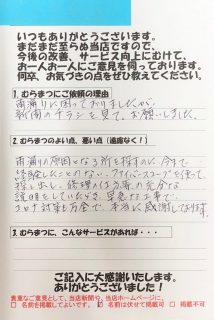 いつもありがとうございます。
まだまだ至らぬ当店ですので、
今後の改善、サービス向上にむけて、
お一人お一人にご意見を伺っております。
何卒、お気づきの点をぜひ教えてください。
1. むらまつにご依頼の理由
雨漏りに困っておりましたが、
新聞のチラシを見て、お願いしました。
2. むらまつのよい点、悪い点（遠慮なく！）
雨漏りの原因となる所を探すのに今まで
経験したことのない、ファイバースコープを使って、
探し出し、修理の
説明をしていただき、
コロナ対策も万全で、本当に感謝しております。
3. むらまつに、こんなサービスがあれば・・・
ご記入に大感謝いたします。
ありがとうございました！
貴重なご意見として、当店新聞や、当店ホームページに、
□ 名前を掲載してよいです。 名前は伏せて掲載可 □ 掲載不可